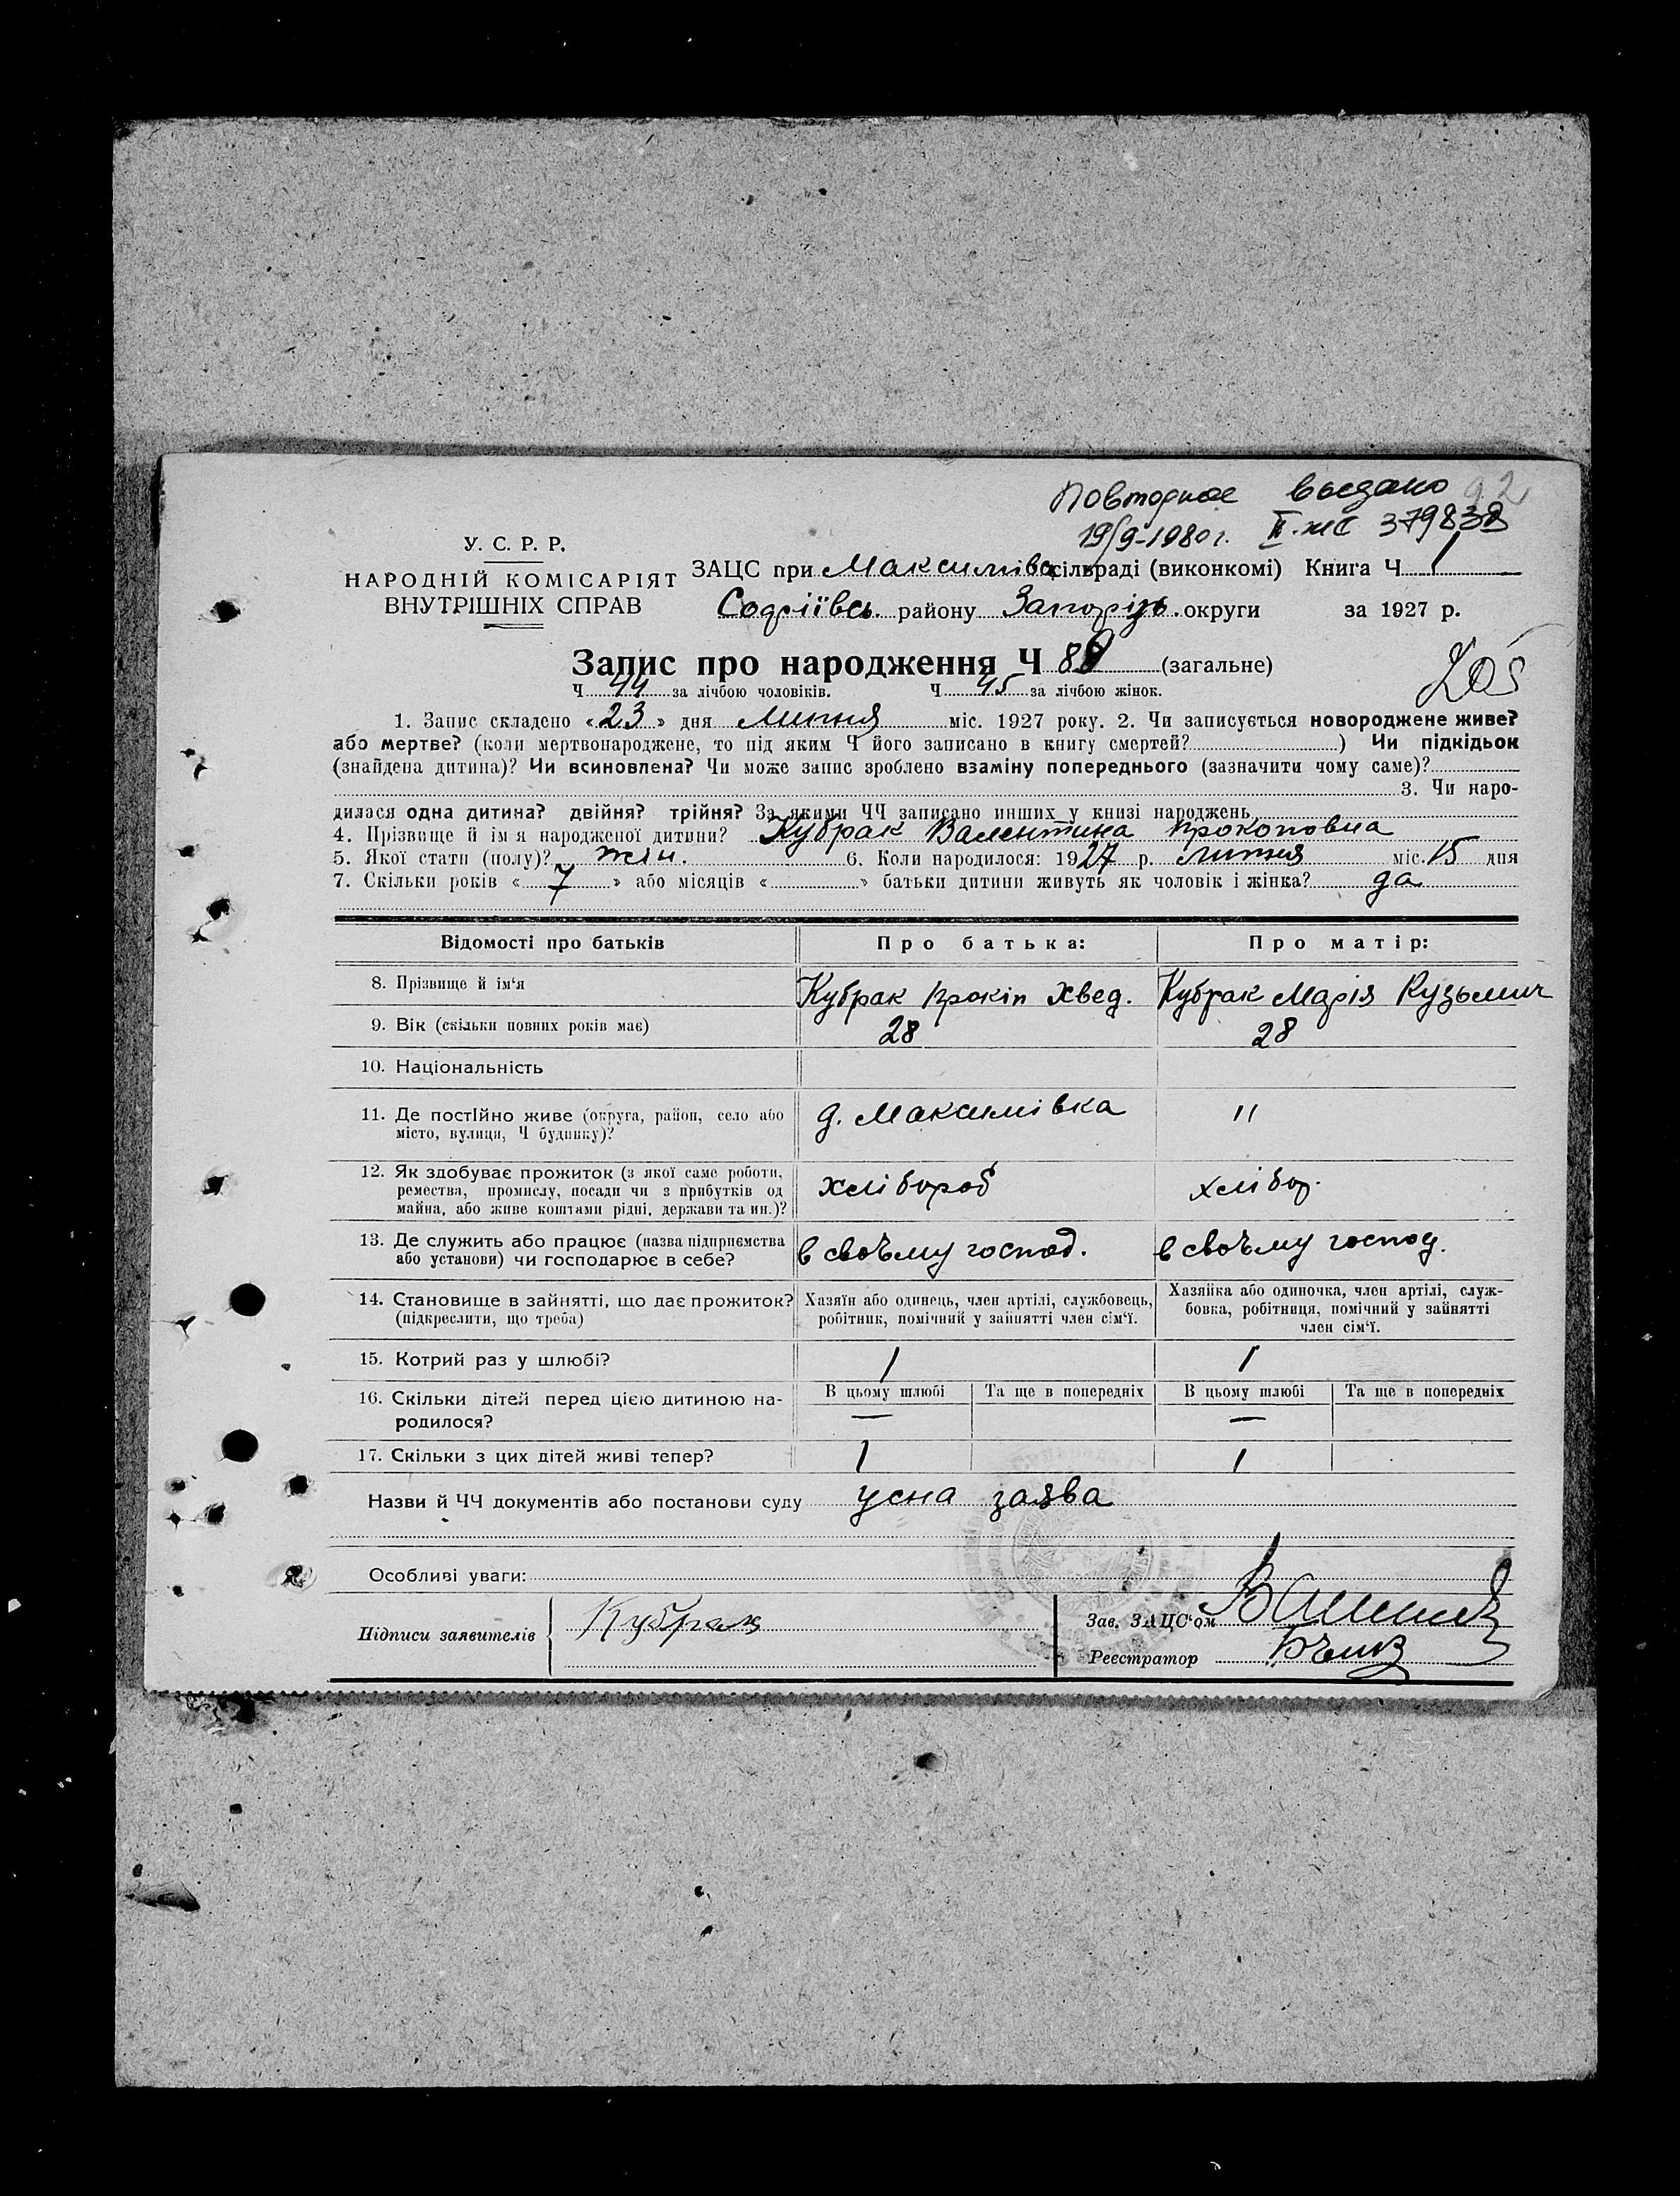 Повторное выдано 92
19/9-1980 г. II-ЖС 379838
У. С. Р. Р.
НАРОДНІЙ КОМІСАРІЯТ
ВНУТРІШНІХ СПРАВ
ЗАЦС при Максимівс. сільраді (виконкомі) Книга Ч. 1
Софіївсь. району Запоріж. округи за 1927 р.
Запис про народження Ч 89 (загальне)
Ч 44 за лічбою чоловіків. Ч 45 за лічбою жінок.
1. Запис складено «23» дня Липня міс. 1927 року. 2. Чи записується новороджене живе?
або мертве? (коли мертвонароджене, то під яким Ч його записано в книгу смертей? ) Чи підкідьок
(знайдена дитина)? Чи всиновлена? Чи може запис зроблено взаміну попереднього (зазначити чому саме)?
3. Чи наро-
дилася одна дитина? двійня? трійня? За якими ЧЧ записано инших у книзі народжень
4. Прізвище й ім'я народженої дитини? Кубрак Валентина Прокоповна
5. Якої стати (полу)? жін. 6. Коли народилося: 1927 р. липня міс. 15 дня
7. Скільки років «7» або місяців « » батьки дитини живуть як чоловік і жінка? да
Відомості про батьків Про батька: Про матір:
8. Прізвище й ім'я Кубрак Прокіп Хвед. Кубрак Марія Кузьмин
9. Вік (скільки повних років має) 28 28
10. Національність
11. Де постійно живе (округа, район, село або
місто, вулиця, Ч будинку)? д. Максимівка "
12. Як здобуває прожиток (з якої саме роботи,
ремества, промислу, посади чи з прибутків од
майна, або живе коштами рідні, держави та ин.)? хлібороб хлібор.
13. Де служить або працює (назва підприємства
або установи) чи господарює в себе? в своъму господ. в своъму господ.
14. Становище в зайнятті, що дає прожиток?
(підкреслити, що треба)
Хазяїн або одинець, член артілі, службовець,
робітник, помічний у зайнятті член сім'ї.
Хазяйка або одиночка, член артілі, служ-
бовка, робітниця, помічний у зайнятті
член сім'ї.
15. Котрий раз у шлюбі? 1 1
16. Скільки дітей перед цією дитиною на-
родилося?
В цьому шлюбі Та ще в попередніх В цьому шлюбі Та ще в попередніх
— —
17. Скільки з цих дітей живі тепер? 1 1
Назви й ЧЧ документів або постанови суду усна заява
Особливі уваги:
Підписи заявителів Кубрак
Зав. ЗАЦС'ом
Реєстратор